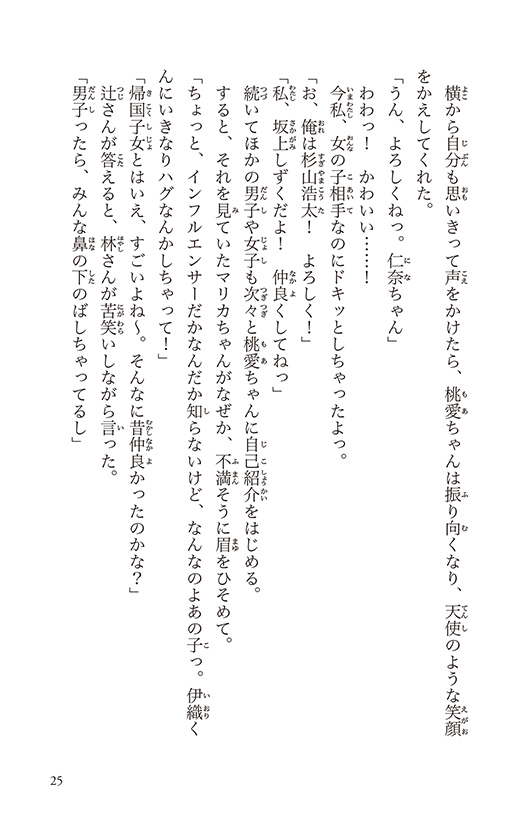 横から自分も思いきって声をかけたら、桃愛ちゃんは振り向くなり、天使のような笑顔
をかえしてくれた。
「うん、よろしくねっ。仁奈ちゃん」
わわっ！　かわいい……！
今私、女の子相手なのにドキッとしちゃったよっ。
「お、俺は杉山浩太！　よろしく！」
「私、坂上しずくだよ！　仲良くしてねっ」
続いてほかの男子や女子も次々と桃愛ちゃんに自己紹介をはじめる。
すると、それを見ていたマリカちゃんがなぜか、不満そうに眉をひそめて。
「ちょっと、インフルエンサーだかなんだか知らないけど、なんなのよあの子っ。伊織く
んにいきなりハグなんかしちゃって！」
「帰国子女とはいえ、すごいよね〜。そんなに昔仲良かったのかな？」
辻さんが答えると、林さんが苦笑いしながら言った。
「男子ったら、みんな鼻の下のばしちゃってるし」
25